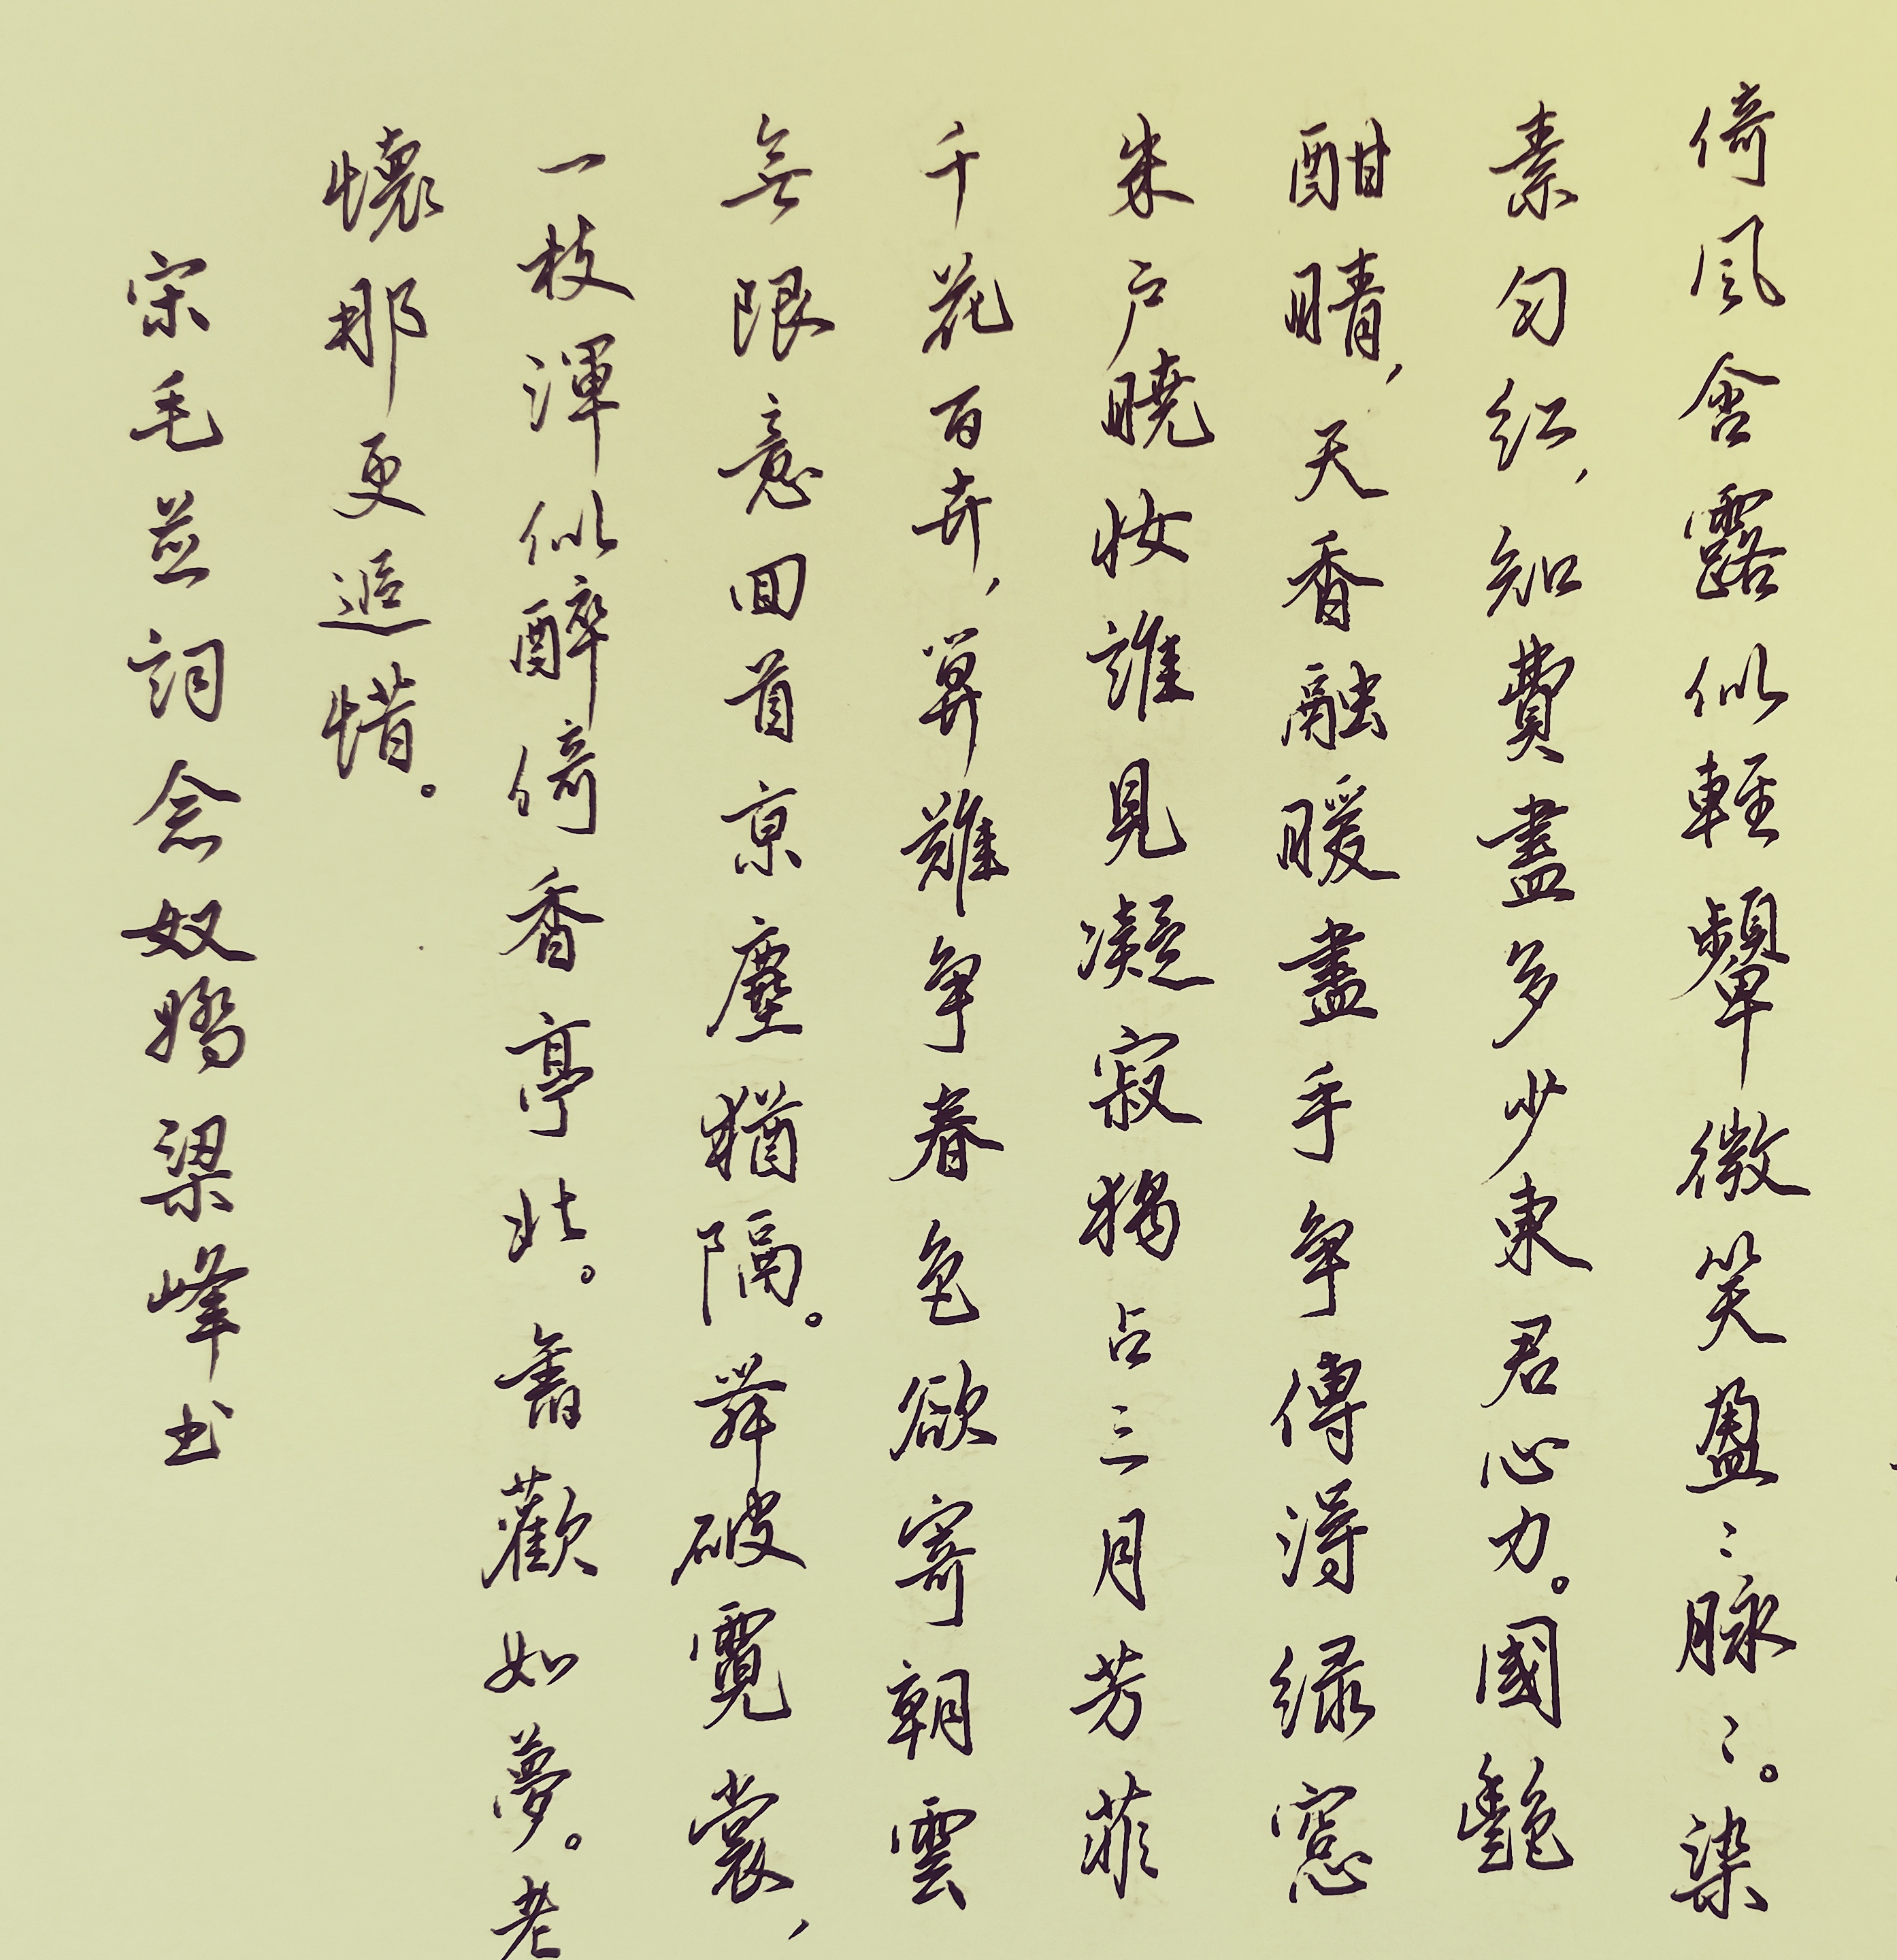 倚風含露似輕顰微笑盈〻脉〻。染
素勻紅,知費盡多少東君心力。國艷
酣晴,天香融暖盡手争傳得緑窓
朱户曉妆誰見凝寂獨占三月芳菲
千花百卉,算難争春色欲寄朝雲
無限意回首京塵猶隔。舞破霓裳,
一枝渾似醉倚香亭北。舊歡如夢。老
懷那更追惜。
宋毛並詞念奴嬌梁峰书